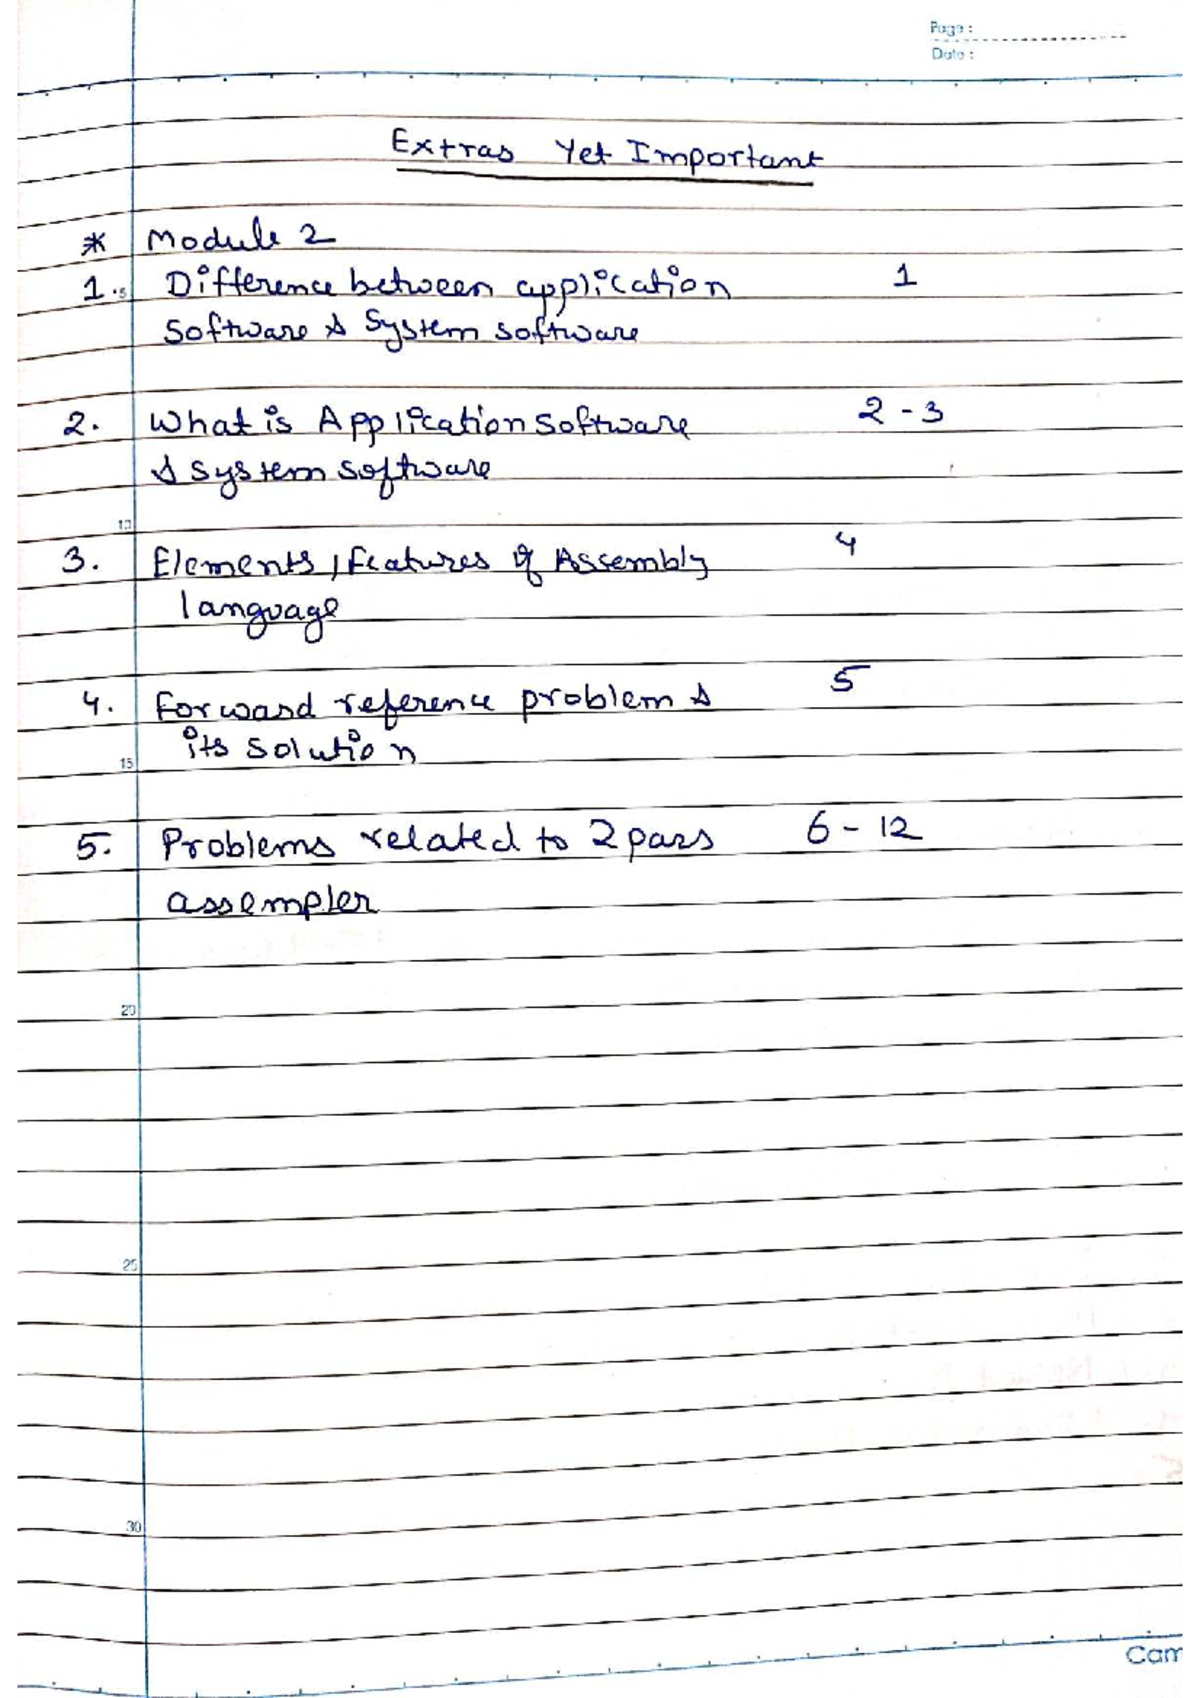 Page :
Date :
Extras Yet Important
* Module 2
1. Difference between application 1
5
Software & System software
2. What is Application Software 2 - 3
& system software
10
3. Elements / features of Assembly 4
language
4. Forward reference problem & 5
its solution
15
5. Problems related to 2 pass 6 - 12
assempler
20
25
30
Cam